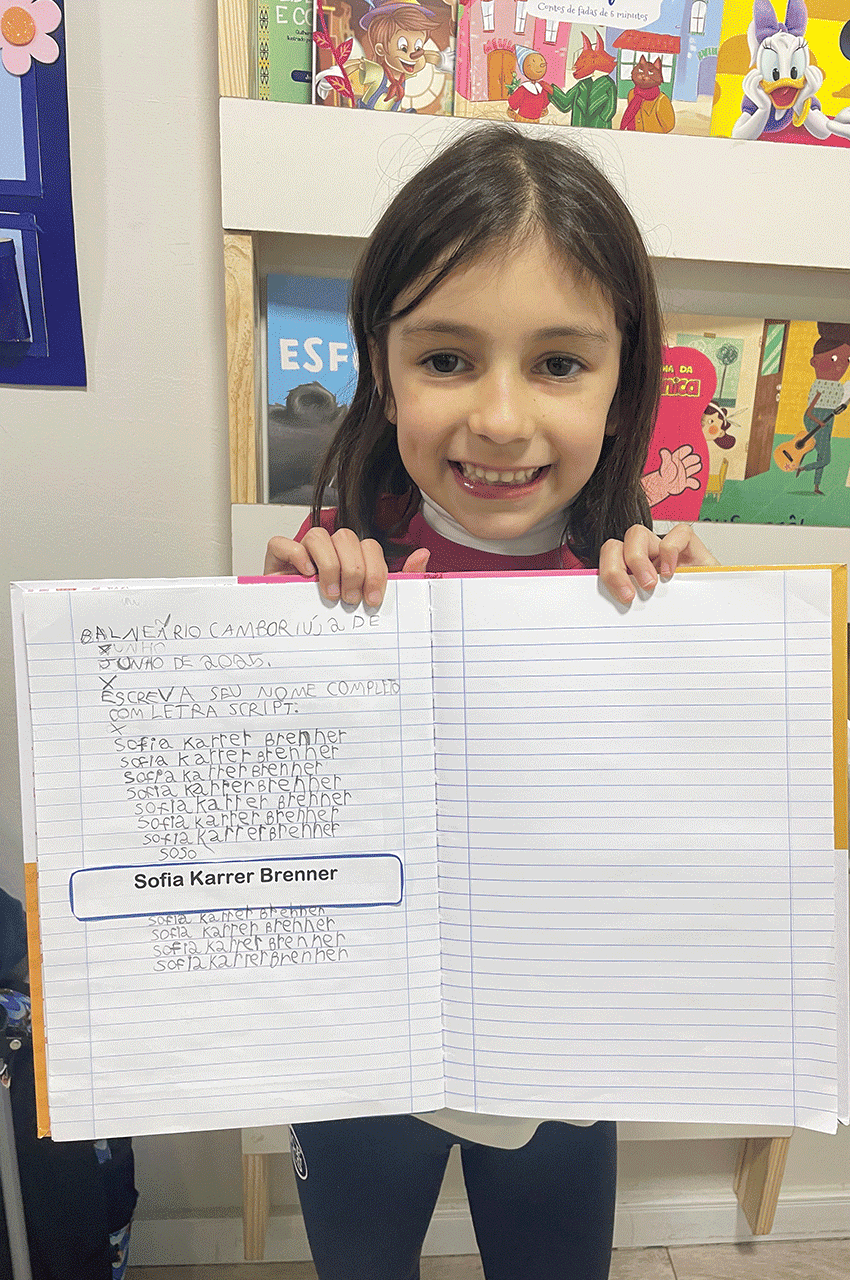 E CO
Contos de fadas de 5 minutos
ESFO
MA DA
ônica
BALNEÁRIO CAMBORIÚ, 2 DE
JUNHO
JUNHO DE 2025.
X
ESCREVA SEU NOME COMPLETO
COM LETRA SCRIPT.
X
Sofia Karrer Brenner
Sofia Karrer Brenner
Sofia Karrer Brenner
Sofia Karrer Brenner
Sofia Karrer Brenner
Sofia Karrer Brenner
Sofia Karrer Brenner
SOSO
Sofia Karrer Brenner
Sofia Karrer Brenner
Sofia Karrer Brenner
Sofia Karrer Brenner
Sofia Karrer Brenner